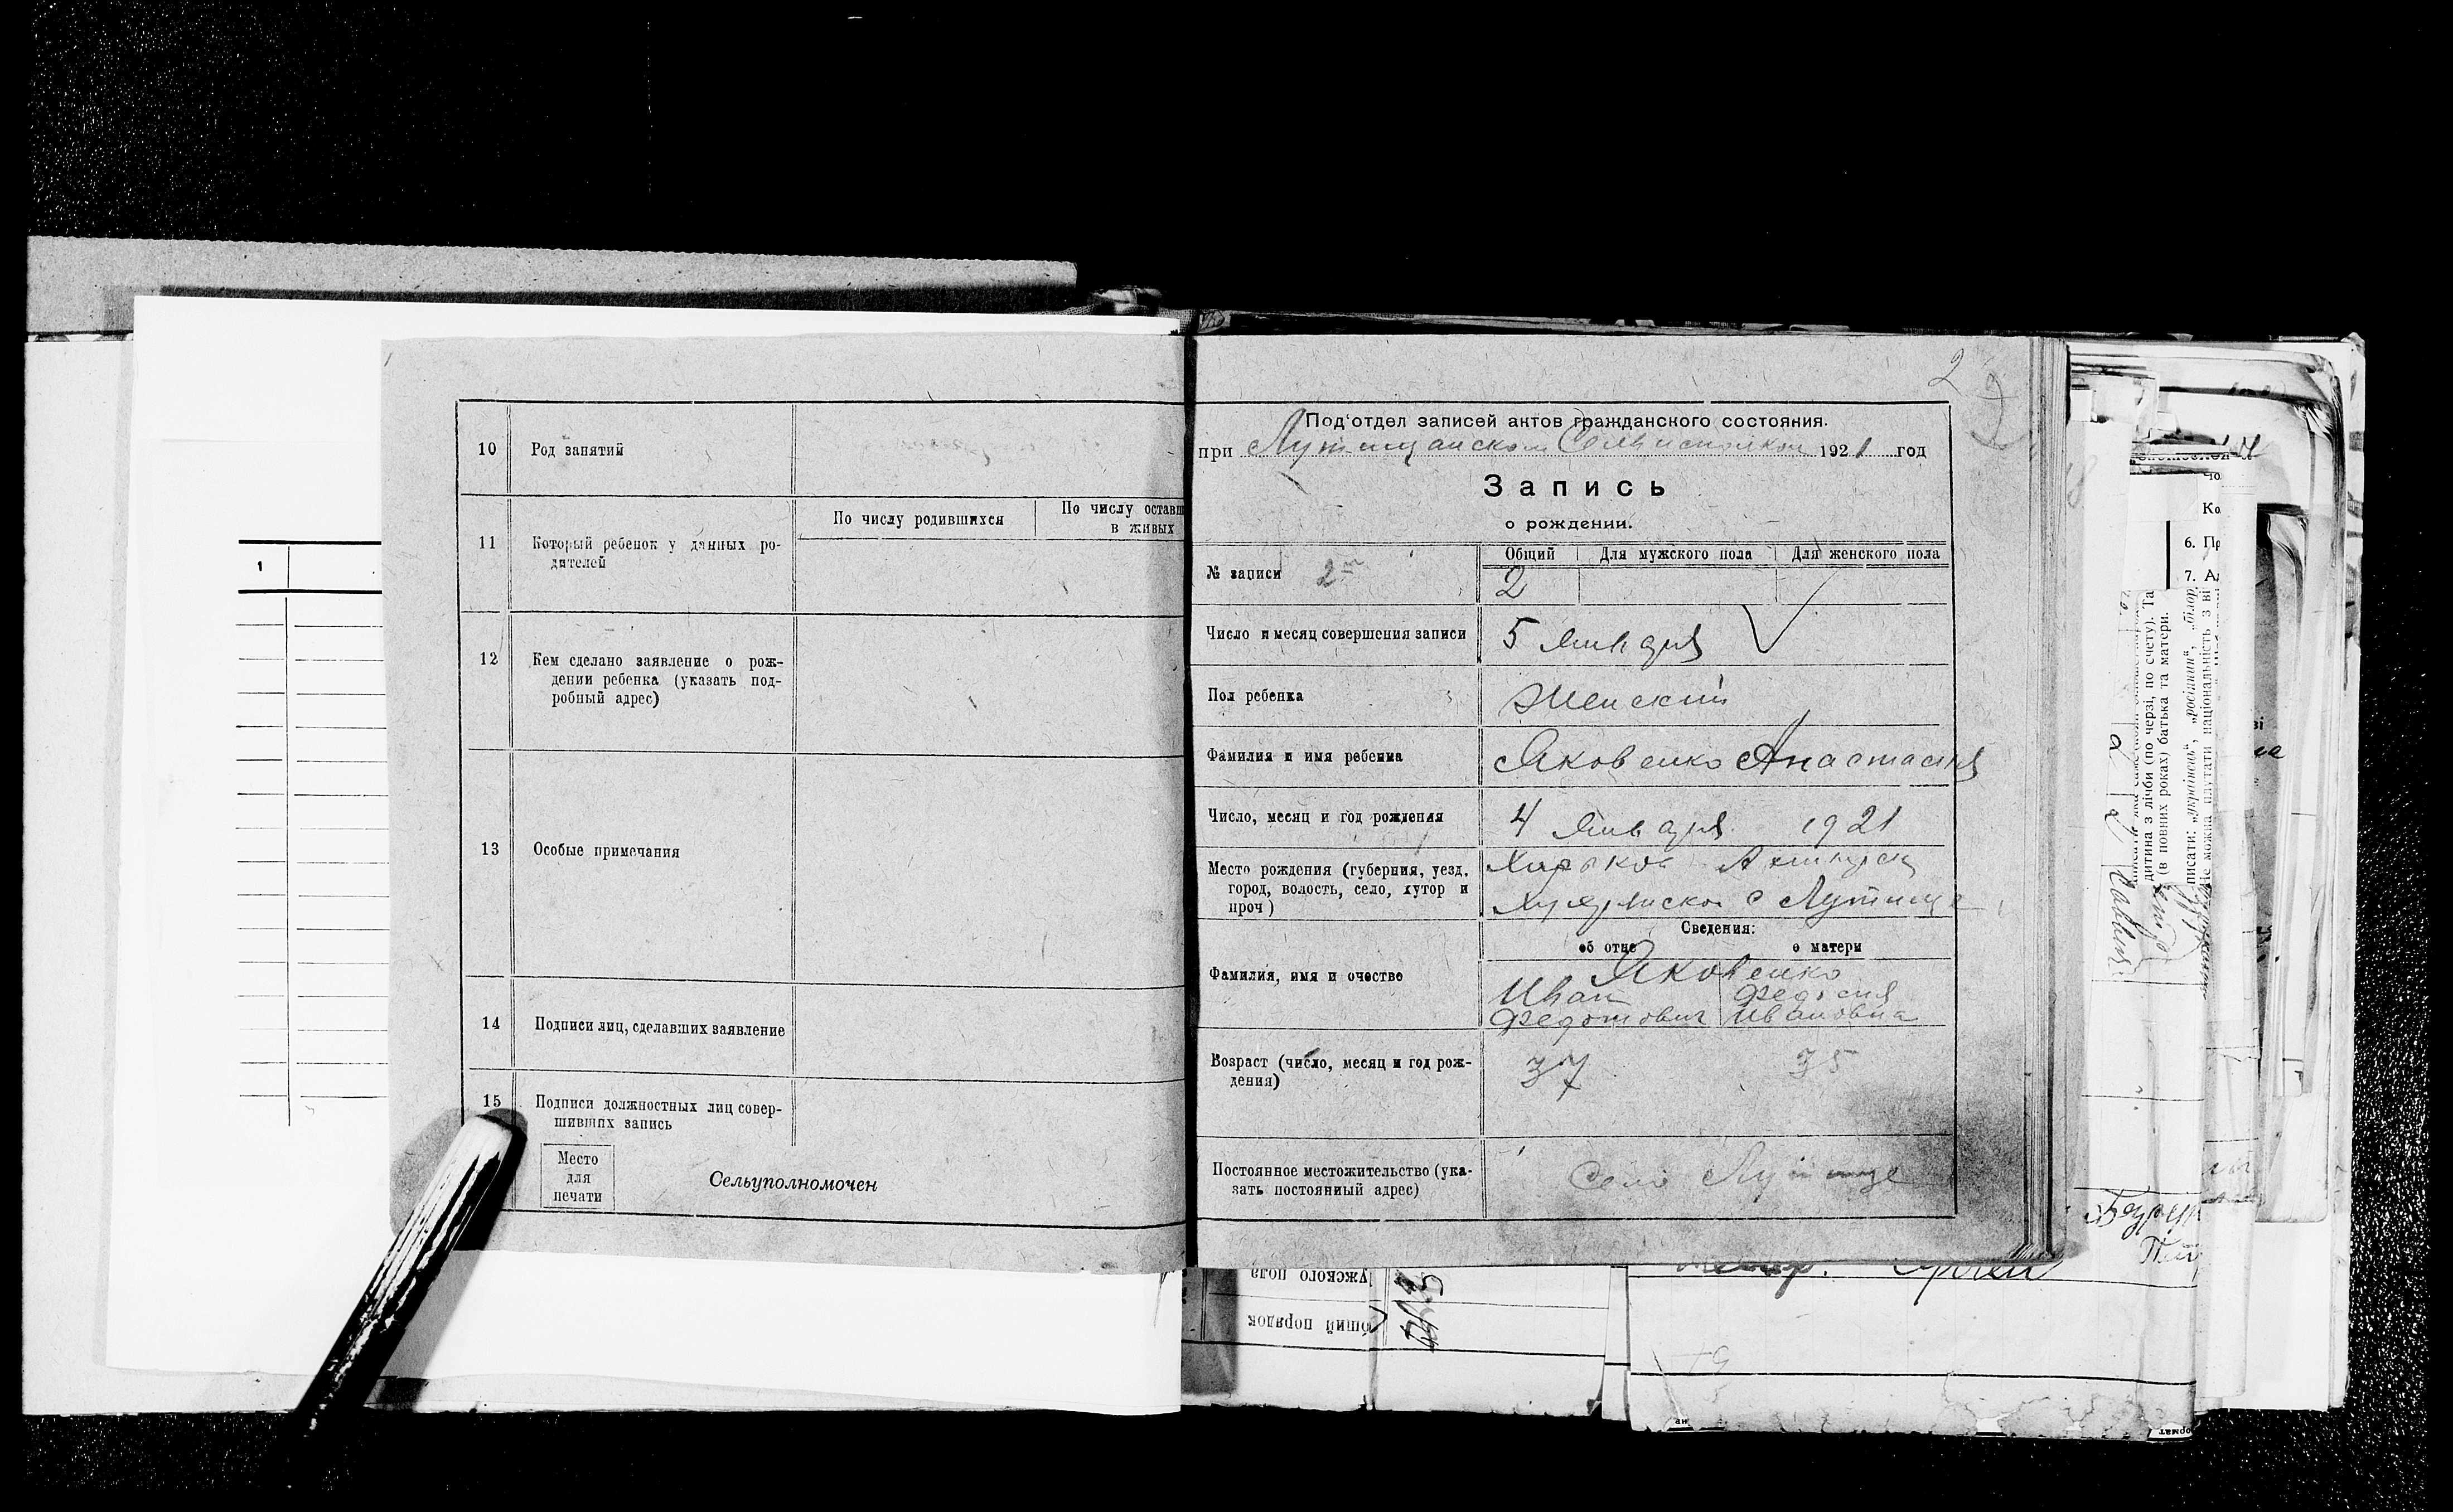 10 Род занятий
11 Который ребенок у данных ро-
дителей
По числу родившихся
По числу оставш
в живых
12 Кем сделано заявление о рож-
дении ребенка (указать под-
робный адрес)
13 Особые примечания
14 Подписи лиц, сделавших заявление
15 Подписи должностных лиц совер-
шивших запись
Место
для
печати
Сельуполномочен
1
2
Под'отдел записей актов гражданского состояния.
при 1921 год
Запись
о рождении.
Общий Для мужского пола Для женского пола
№ записи 25 2
Число и месяц совершения записи 5 Января
Пол ребенка Женский
Фамилия и имя ребенка Яковенко Анастасия
Число, месяц и год рождения 4 Января 1921
Место рождения (губерния, уезд,
город, волость, село, хутор и
проч)
Харьков
с Лутище
Сведения:
об отце о матери
Фамилия, имя и очество
Яковенко
Иван Федосия
Федотович Ивановна
Возраст (число, месяц и год рож-
дения)
37 35
Постоянное местожительство (ука-
зать постоянный адрес)
Село Лутище
ужского пола
бщий порядок
6. Пр
7. Ад
дитина з лічби (по черзі, по счету). Та
(в повних роках) батька та матери.